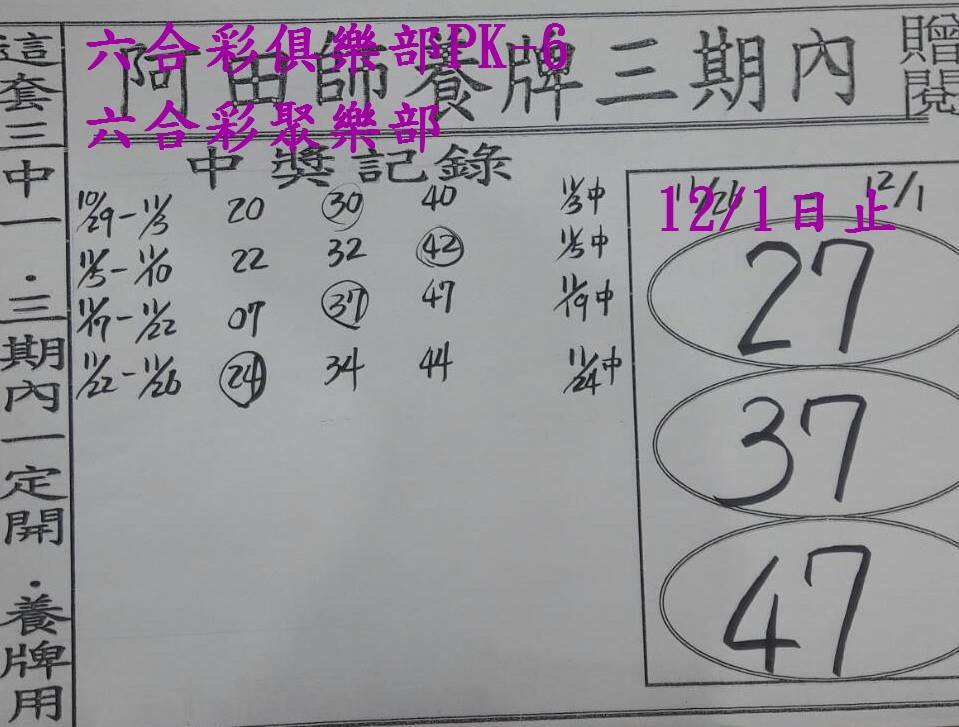 六合彩俱樂部PK-6
阿田師養牌三期內
贈閱
六合彩聚樂部
這套三中一.三期內一定開.養牌用
中獎記錄
10/29-11/3 20 30 40 11/3中
11/5-11/10 22 32 42 11/5中
11/17-11/22 07 37 47 11/19中
11/22-11/26 24 34 44 11/24中
11/26 12/1
12/1日止
27
37
47